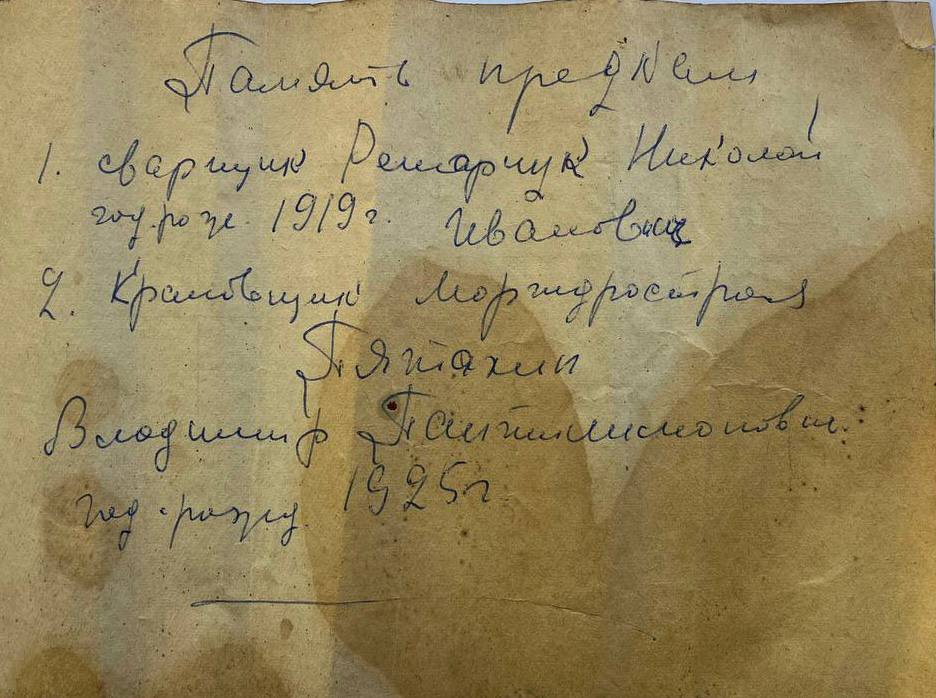 Память предкам
1. сварщик Решарчук Николай
год. рожд. 1919 г. Иванович
2. Крановщик Моргидростроя
Пятахин
Владимир Пантилимонович.
год. рожд. 1925 г